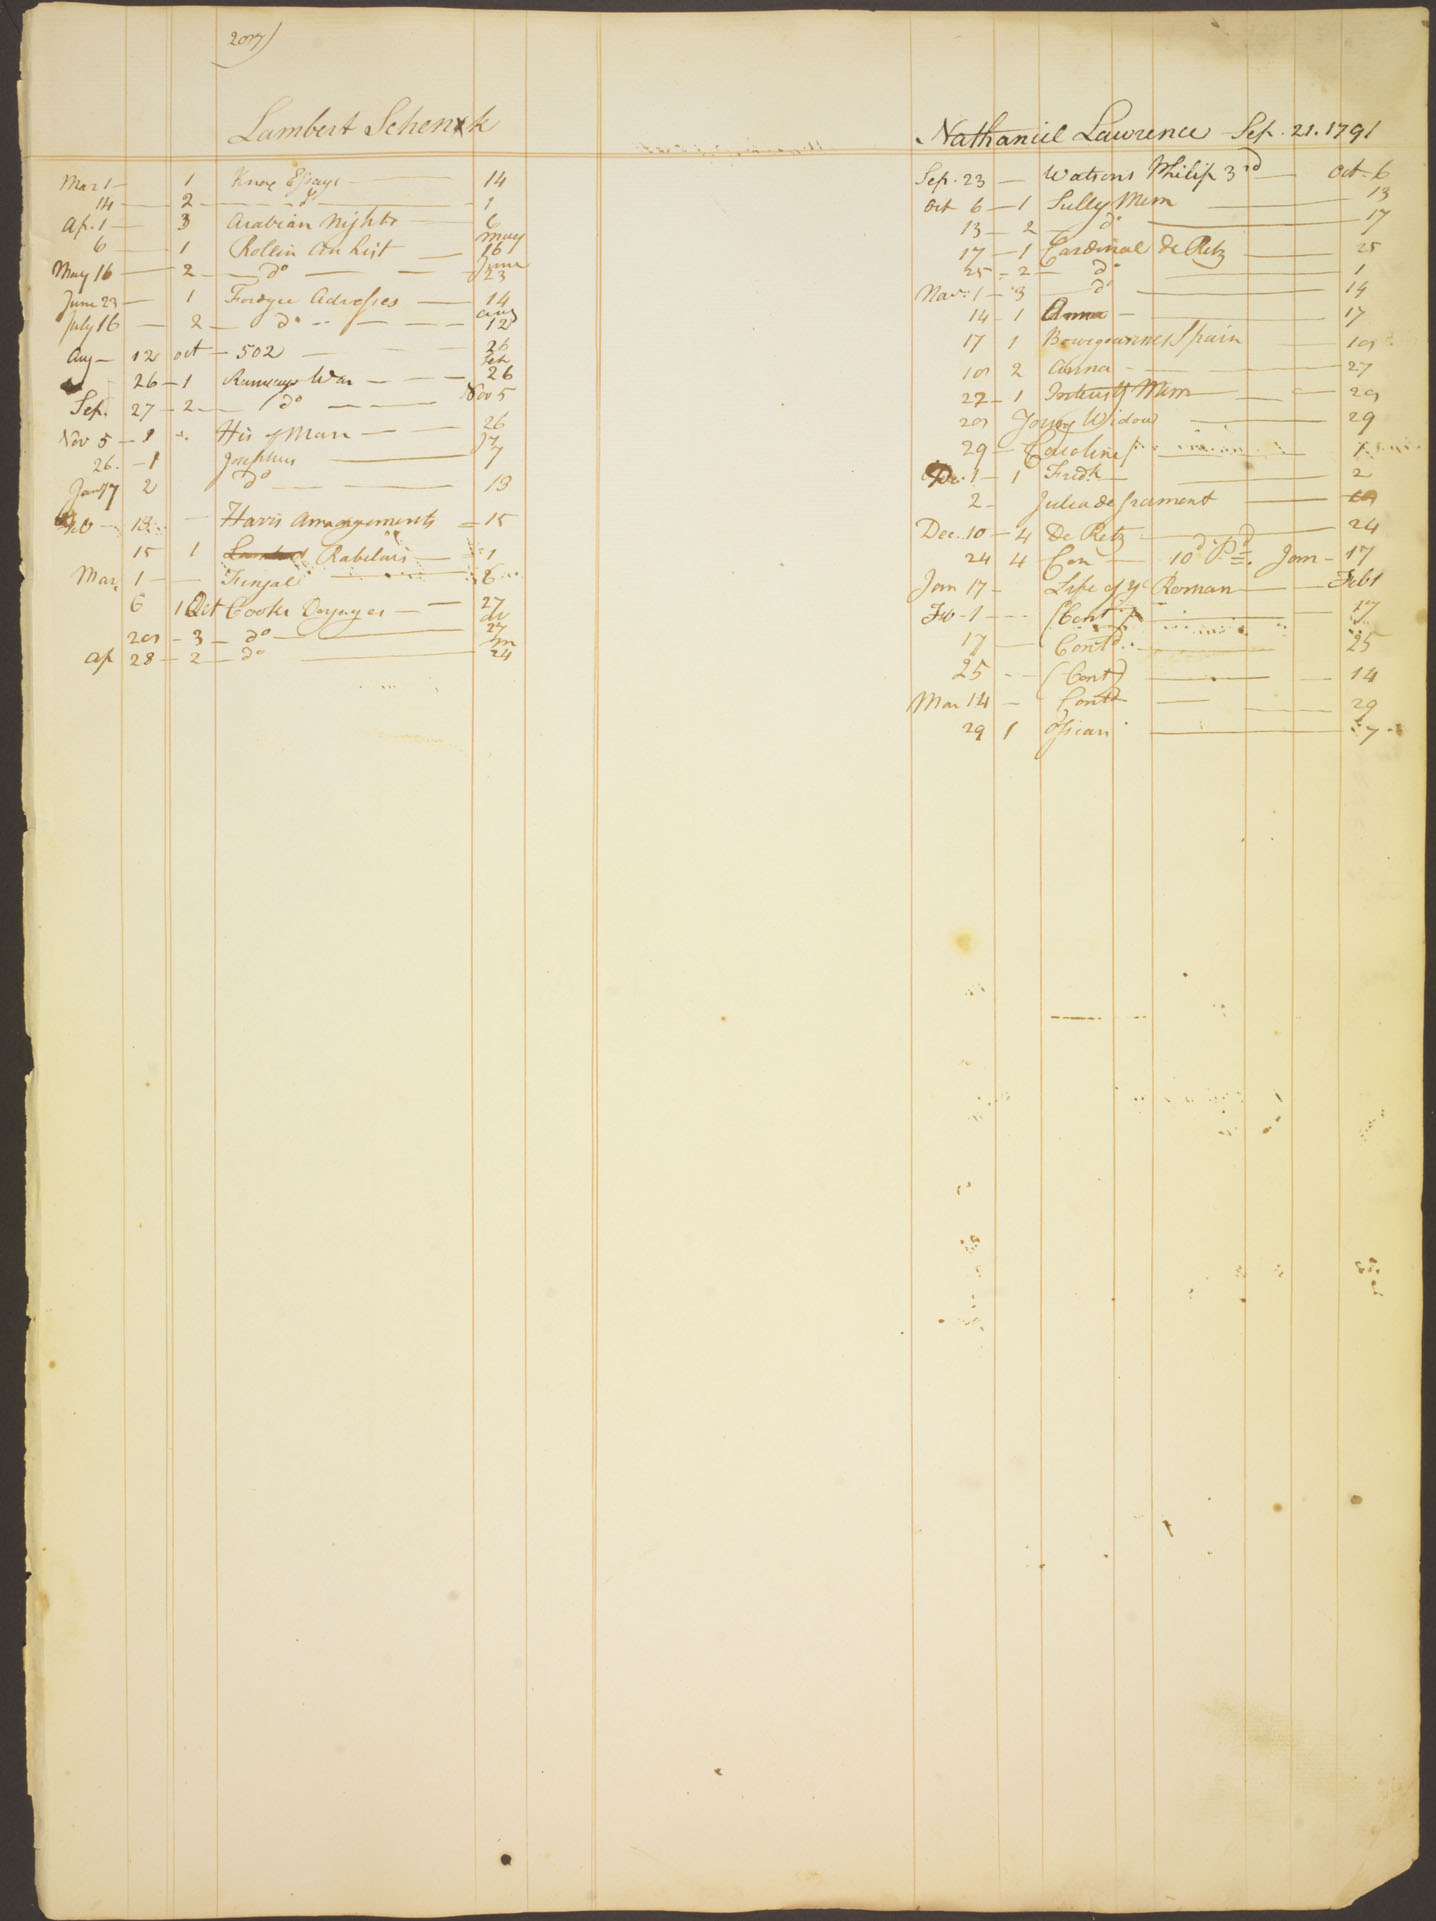 207)
Lambert Schenck
Mar 1 — 1 Knox Essays — 14
14 — 2 — do — 1
Ap. 1 — 3 Arabian Nights 6
6 — 1 Rollin An Hist — May 16
May 16 — 2 — do — June 23
June 23 — 1 Fordyce Adresses — 14
July 16 — 2 — do — Aug 12
Aug — 12 oct — 502 — 26
26 — 1 Ramsays War — 26
Sep. 27 — 2 — do — Nov 5
Nov 5 — His of Man — 26
26. — 1 Josephus 7
Jany 7 2 do — 13
13 — Haris Arrangements — 15
15 1 Rabelais — 1
Mar 1 — Fingal 6
6 1 Oct Cooks Voyages — 27
— 3 — do — 27
Ap 28 — 2 — do — 24
Nathaniel Lawrence — Sep. 21. 1791
Sep. 23 — Watsons Philip 3rd — Oct. 6
Oct 6 — 1 Sully Mem — 13
13 — 2 — do — 17
17 — 1 Cardinal de Retz — 25
25 — 2 — do — 1
Nov. 1 — 3 — do — 14
14 — 1 Anna — 17
17 1 Spain
2 Anna — 27
27 — 1 Mem —
Young Widow — 29
29 — Caroline — 1
De. 1 — 1 Fredk — 2
2 — Julia de —
Dec. 10 — 4 De Retz — 24
24 4 Con — 10d Pd. Jan — 17
Jan 17 — Life of ye Roman — Feb 1
Feb — 1 — (Cont) — 17
17 — Contd. — 25
25 — (Cont) — 14
Mar 14 — Contd — 29
29 1 Ossian — 7